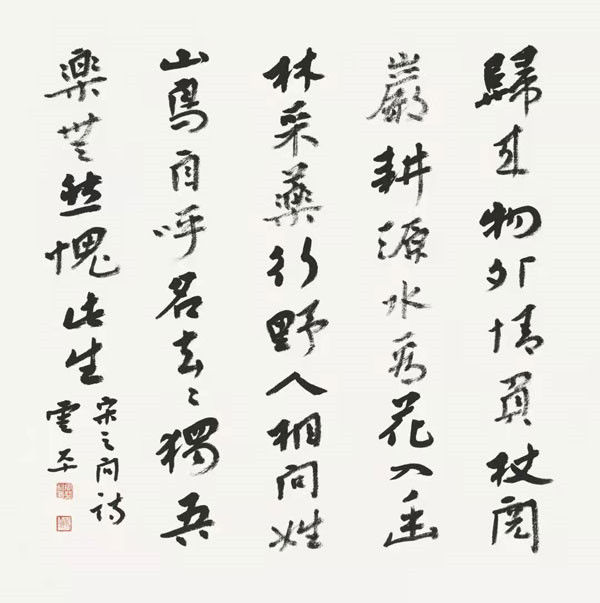 歸来物外情負杖閱
巖耕源水看花入幽
林采藥行野人相问姓
山鳥自呼名去〻獨吾
樂無然愧此生
宋之问詩
雲平